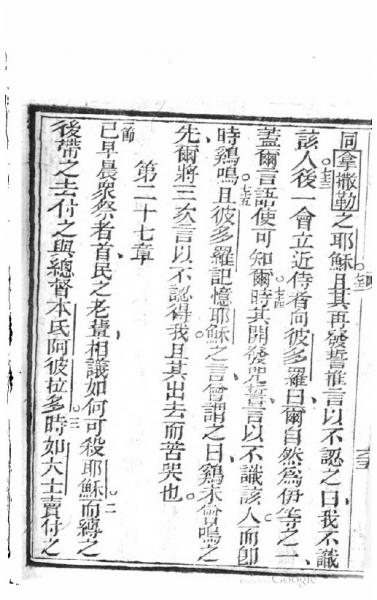 同拿撒勒之耶穌。七二且其再發誓推言以不認之曰我不識
該人。七三後一會立近侍者向彼多羅曰爾自然為伊等之一、
蓋爾言語使可知爾。七四時其開發咒誓言以不識該人而卽
時鷄鳴。七五且彼多羅記憶耶穌之言曾謂之曰鷄未曾鳴之
先爾將三次言以不認得我且其出去而苦哭也。
第二十七章
一節已早晨衆祭者首民之老輩相議如何可殺耶穌。二而縛之
後帶之去付之與總督本氏阿彼拉多。三時如大士賣付之
Google